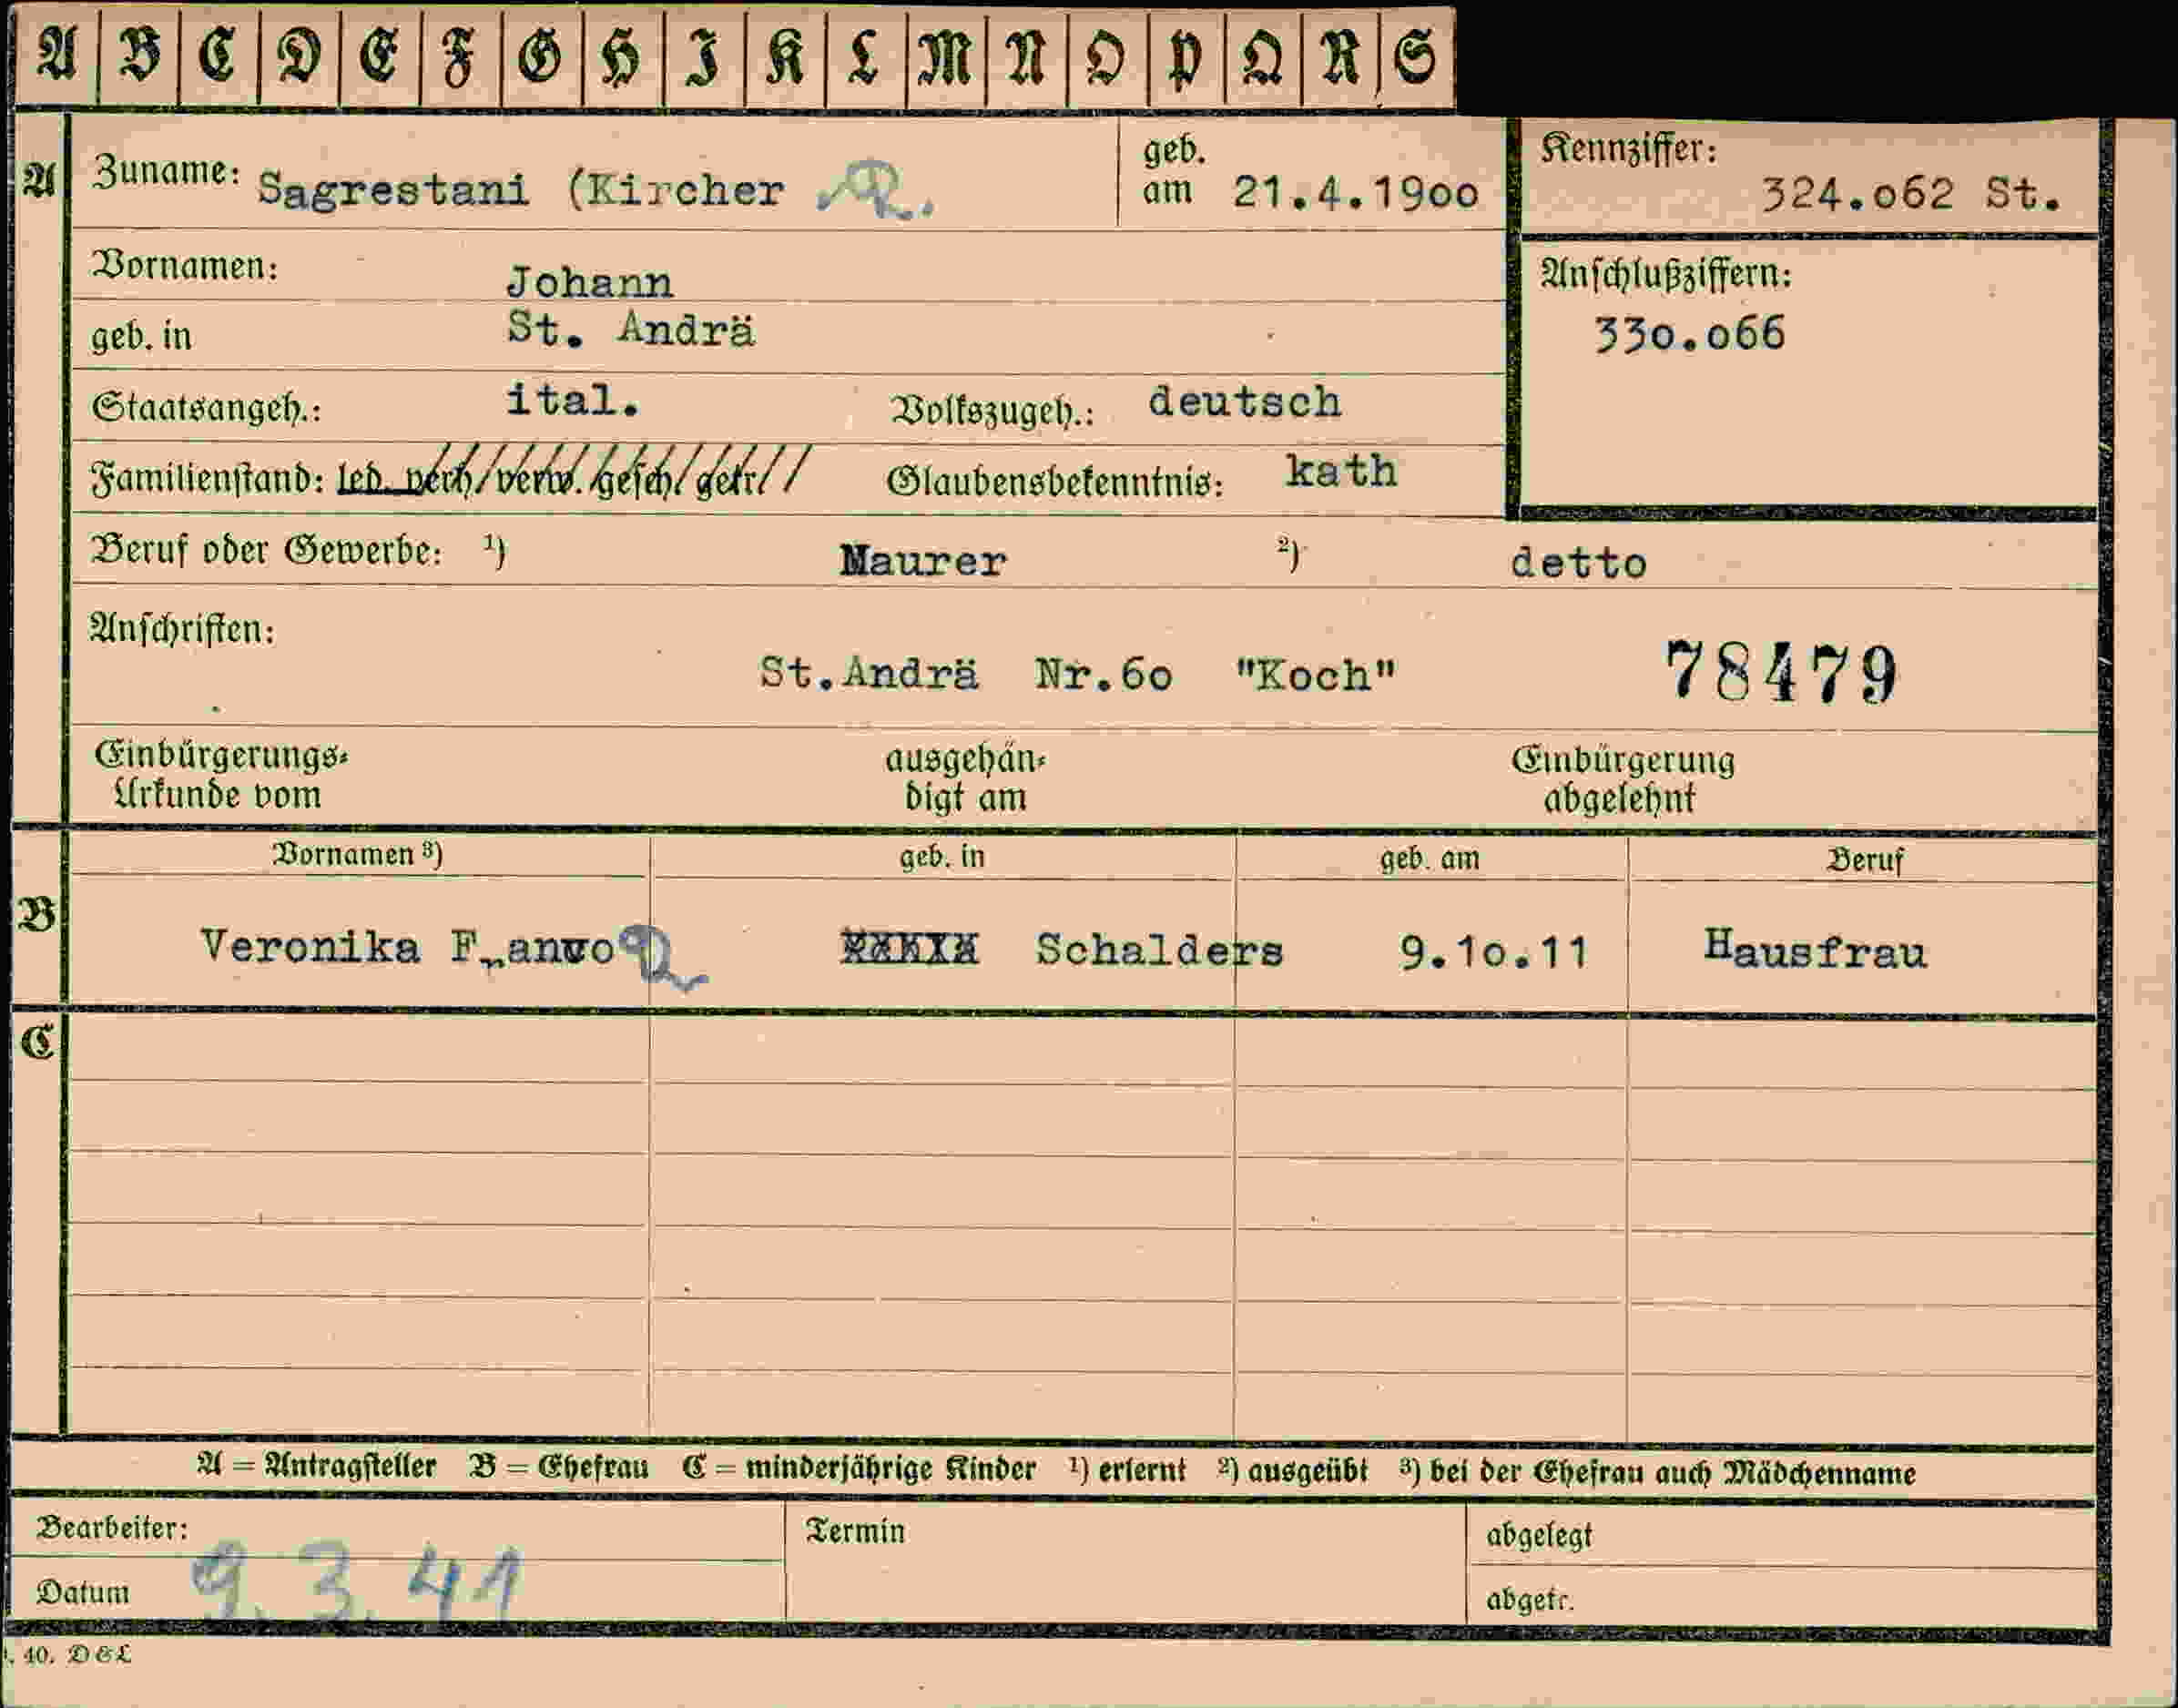 A B C D E F G H I K L M N O P Q R S
A
Zuname: Sagrestani (Kircher
geb. am 21.4.19oo
Kennziffer: 324.o62 St.
Vornamen: Johann
Anschlußziffern: 33o.o66
geb. in St. Andrä
Staatsangeh.: ital. Volkszugeh.: deutsch
Familienstand: led. verh. verw. gesch. getr. Glaubensbekenntnis: kath
Beruf oder Gewerbe: ¹) Maurer ²) detto
Anschriften:
St.Andrä Nr.6o "Koch" 78479
Einbürgerungs- ausgehän- Einbürgerung
Urkunde vom digt am abgelehnt
B
Vornamen ³) geb. in geb. am Beruf
Veronika Schalders 9.1o.11 Hausfrau
C
A = Antragsteller B = Ehefrau C = minderjährige Kinder ¹) erlernt ²) ausgeübt ³) bei der Ehefrau auch Mädchenname
Bearbeiter: Termin abgelegt
Datum 9.3.41 abgetr.
40. D&L